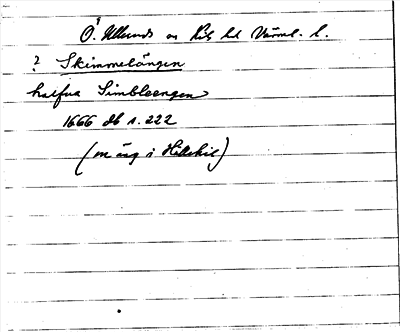 Ö. Ullerud sn Kils hd Värml. l.
? Skimmelängen
halfua Simbleengen
1666 db s. 222
(en äng i Hillskil)